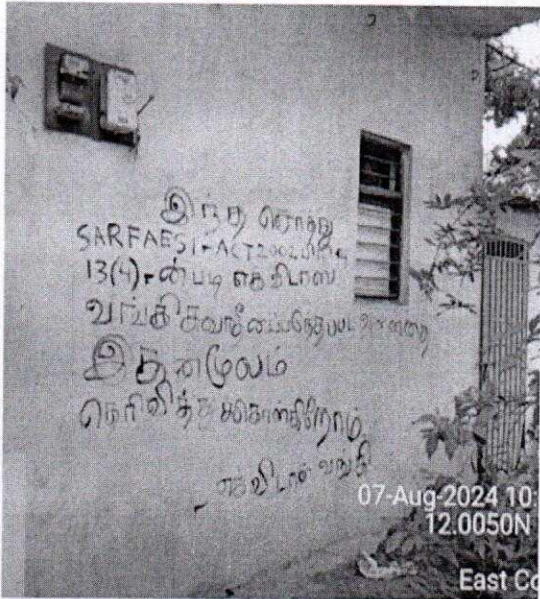 இந்த சொத்து
SARFAESI-ACT2002 பிரிவு
13(4)-ன்படி எக்விடாஸ்
வங்கி சுவாதீனப்படுத்தப்பட்டுள்ளதை
இதன்மூலம்
தெரிவித்துக்கொள்கிறோம்
எக்விடாஸ் வங்கி
07-Aug-2024 10:
12.0050N
East Co